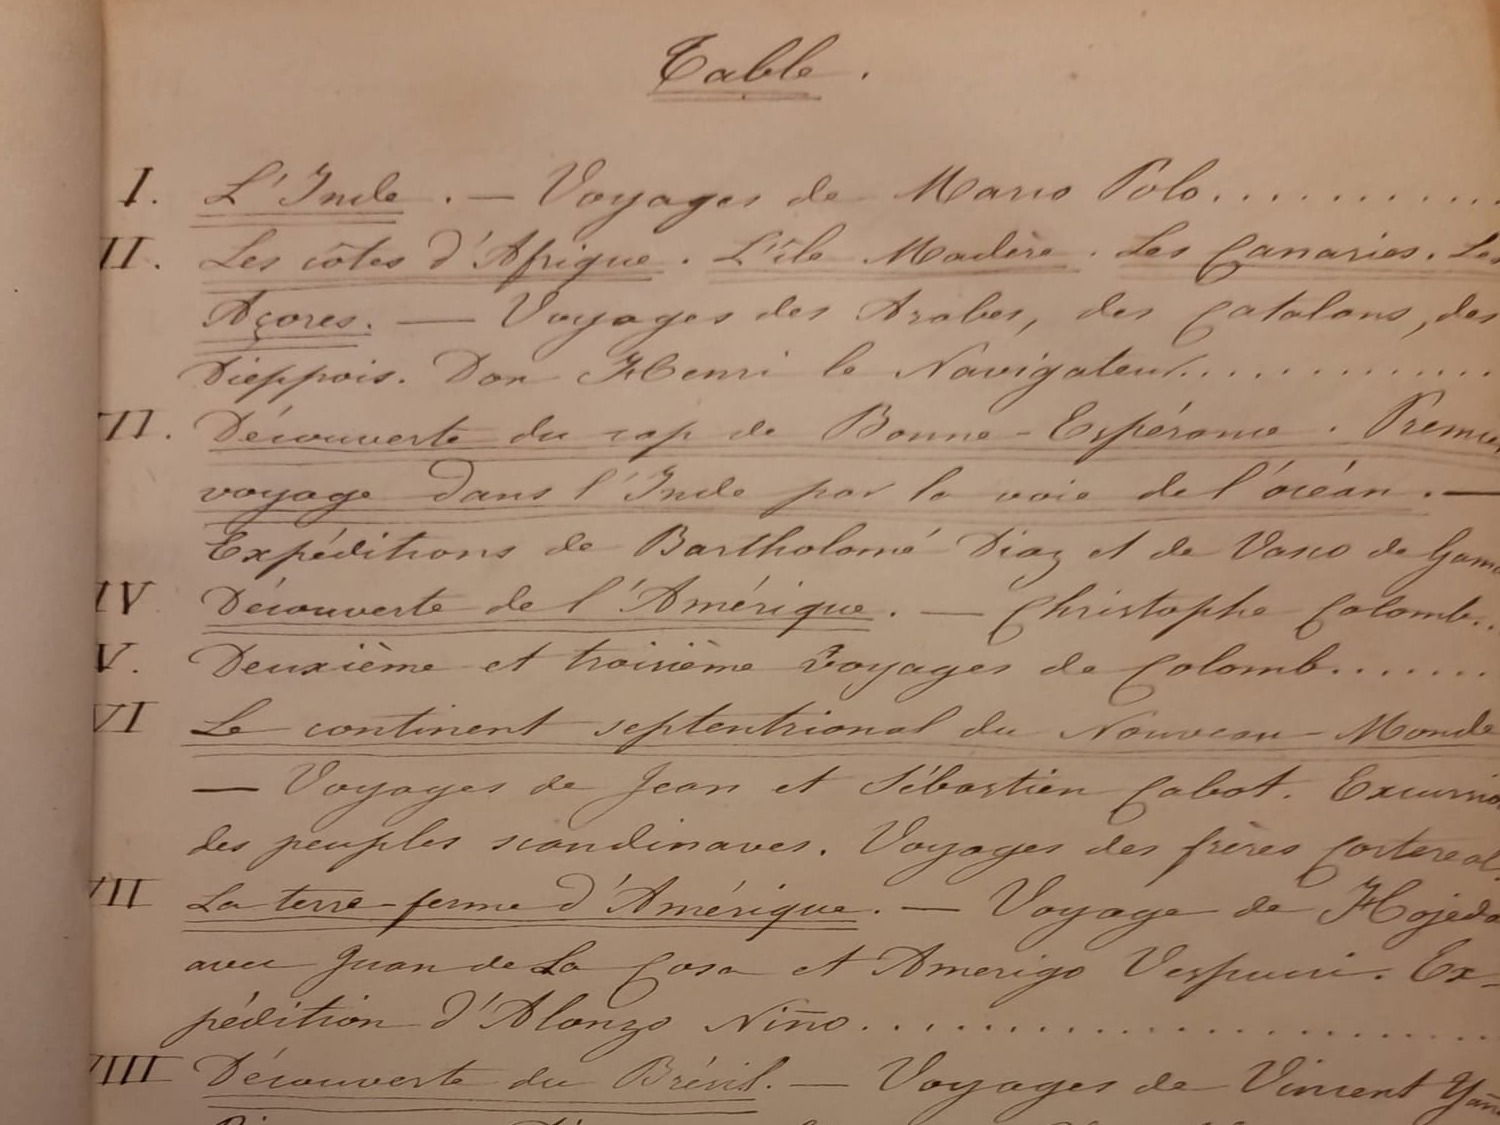 Table.
I. L'Inde. — Voyages de Marco Polo............
II. Les côtes d'Afrique. L'île Madère. Les Canaries. Les
Açores. — Voyages des Arabes, des Catalans, des
Dieppois. Don Henri le Navigateur..............
II. Découverte du cap de Bonne-Espérance. Premier
voyage dans l'Inde par la voie de l'océan. —
Expéditions de Bartholomé Diaz et de Vasco de Gama
IV Découverte de l'Amérique. — Christophe Colomb..
V. Deuxième et troisième voyages de Colomb.......
VI Le continent septentrional du Nouveau-Monde
— Voyages de Jean et Sébastien Cabot. Excursio
des peuples scandinaves. Voyages des frères Cortereal.
VII La terre-ferme d'Amérique. — Voyage de Hojeda
avec Juan de La Cosa et Amerigo Vespucci. Ex-
pédition d'Alonzo Niño.......................
VIII Découverte du Brésil. — Voyages de Vincent Yañ